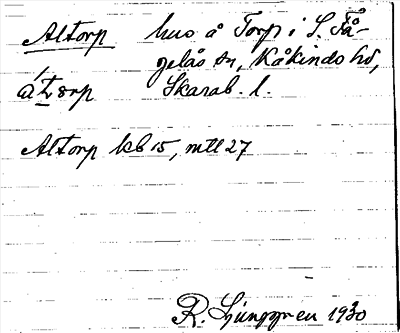 Altorp hus å Torp i S. Få-
gelås sn, Kåkinds hd,
Skarab. l.
Altorp kb 15, mtl 27
R. Ljunggren 1930